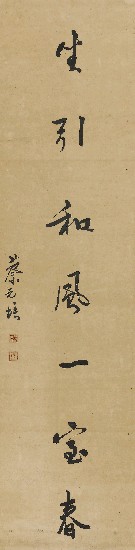 坐引和風一室春
蔡元培